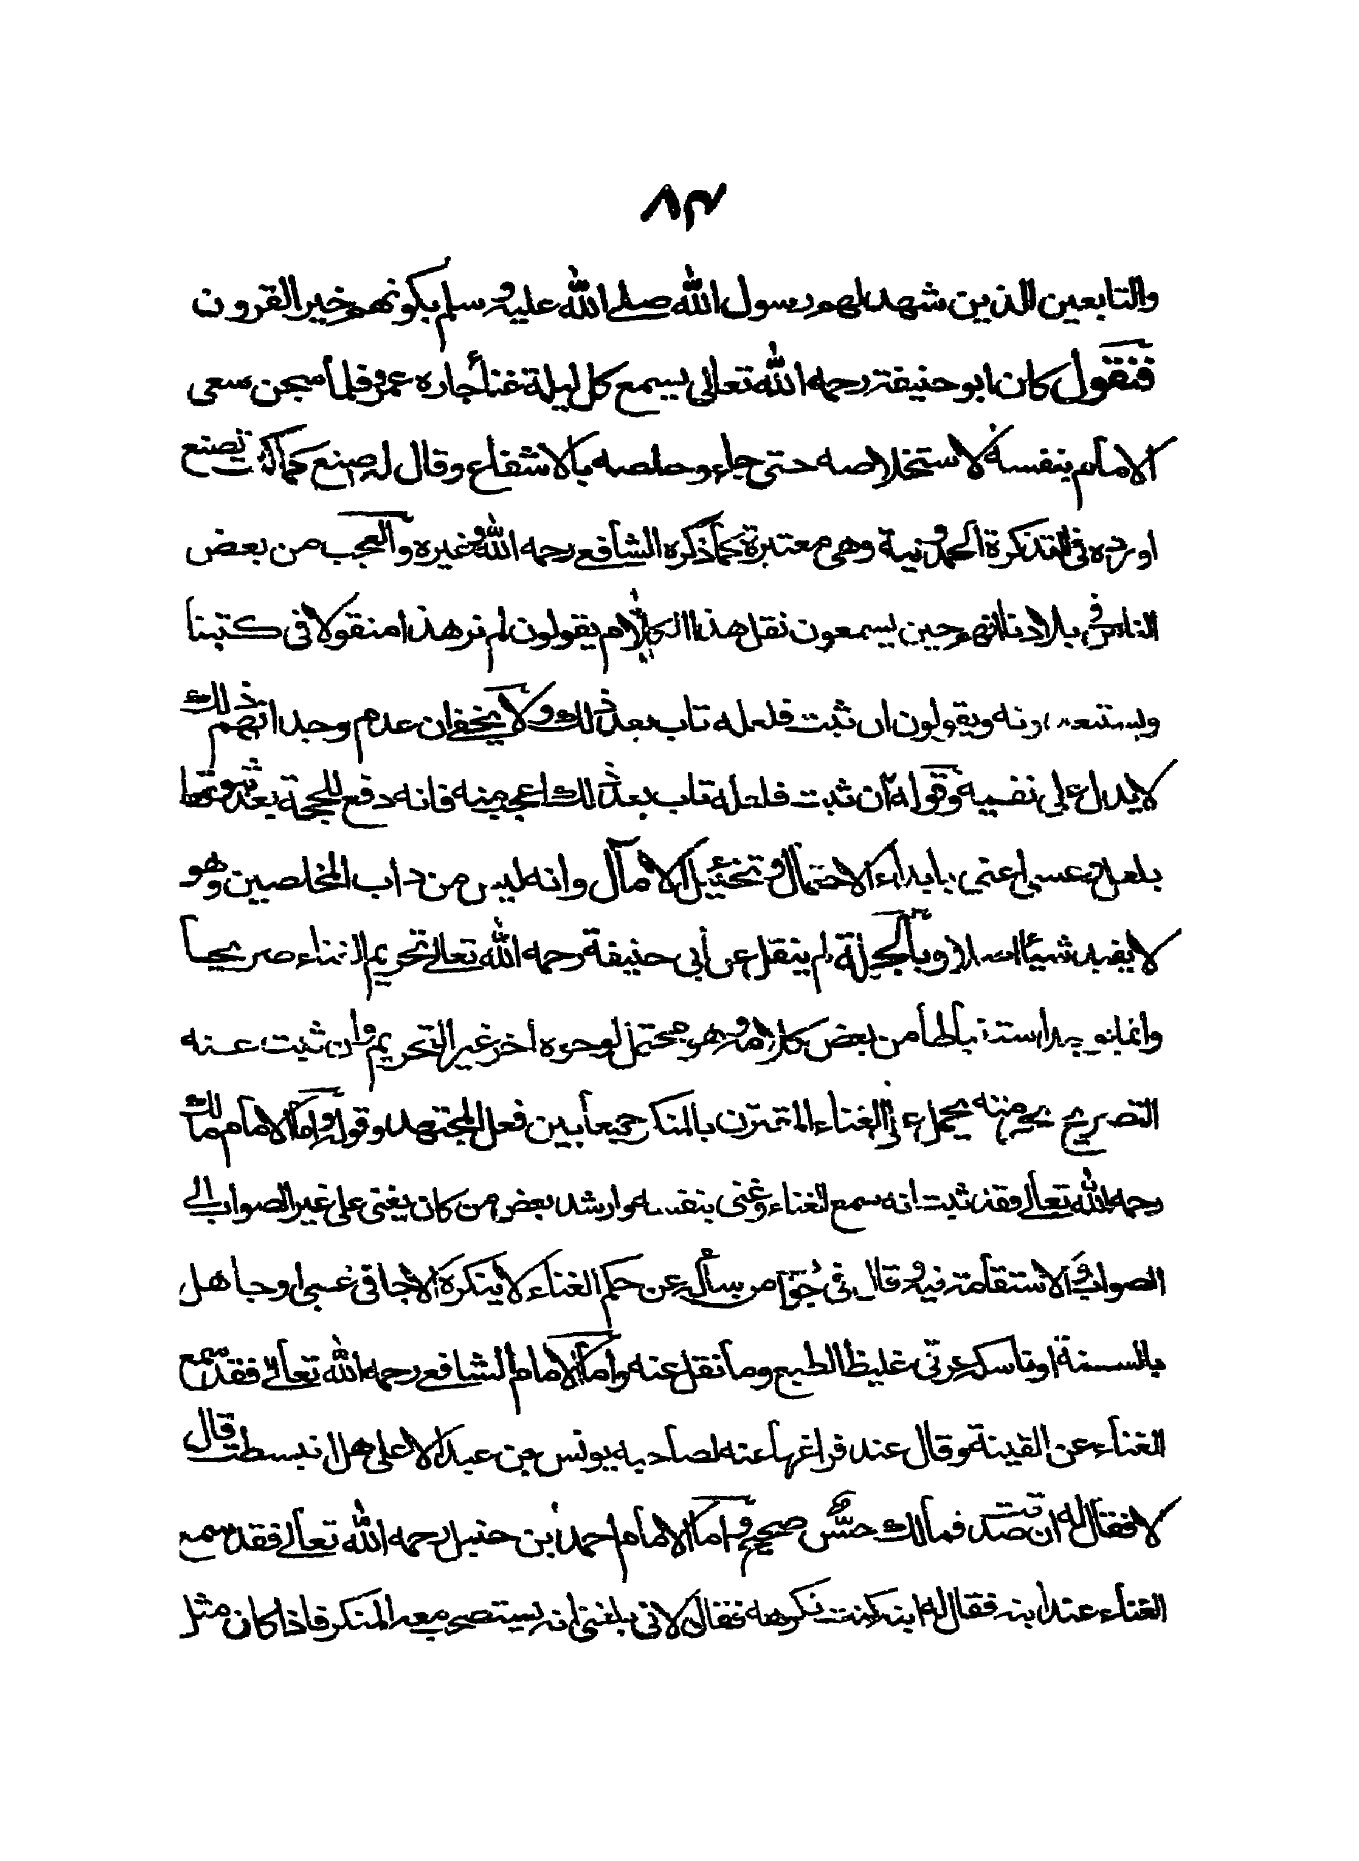 ٨٣
والتابعين الذين شهد لهم رسول الله صلى الله عليه وسلم بكونهم خير القرون
فنقول كان ابو حنيفة رحمه الله تعالى يسمع كل ليلة غنأ جاره عمرو فلما سجن سعى
الامام بنفسه لاستخلاصه حتى جاء وخلصه بالاشفاع وقال له صنع كما كنت تصنع
اورده في التذكرة الحمدونية وهي معتبرة كما ذكره الشافعي رحمه الله وغيره والعجب من بعض
الناس في بلادنا انهم حين يسمعون نقل هذا الكلام يقولون لم نر هذا منقولا في كتبنا
ويستبعدونه ويقولون ان ثبت فلعله تاب بعد ذلك ولا يخفى ان عدم وجدانهم ذلك
لا يدل على نفسه وقوله ان ثبت فلعله تاب بعد ذلك اعجب منه فانه دفع للحجة بعد ثبوتها
بلعل وعسى اعني بابداء الاحتمال وتخئيل الامآل وانه ليس من داب المخلصين وهو
لا يفيد شيئا اصلا وبالجملة لم ينقل عن أبي حنيفة رحمه الله تعالى تحريم الغناء صريحا
وانما استنباطا من بعض كلامه وهو محتمل لوجوه أخر غير التحريم وان ثبت عنه
التصريح بحرمته يحمل على الغناء المقترن بالمنكر جمعا بين فعل المجتهد وقوله واما الامام مالك
رحمه الله تعالى فقد ثبت انه سمع الغناء وغنى بنفسه وارشد بعض من كان يغنى على غير الصواب الى
الصواب والاستقامة فيه وقال في جواب من سأله عن حكم الغناء لا ينكره الا جافي غبى او جاهل
بالسنة او ناسك عرتى غليظ الطبع وما نقل عنه واما الامام الشافعي رحمه الله تعالى فقد سمع
الغناء عن القينة وقال عند فراغها عنه لصاحبه يونس بن عبد الاعلى هل انبسطت قال
لا فقال له ان صدقت فمالك حس صحيح واما الامام احمد بن حنبل رحمه الله تعالى فقد سمع
الغناء عند ابنه فقال له ابنه كنت تكرهه فقال لانى بلغنى انه يستصحب معه المنكر فاذا كان مثل